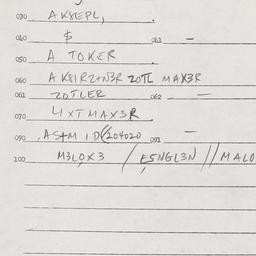 030 AK8EPL,
040 $ 041 —
050 A TOKER
060 AK8IRZ+N3R ZOTL MAX3R
061 ZOTLER 062 —
070 LIXTMAX3R
090 , AS+M ID(204020 091 —
100 M3LOX3 / E5NGL3N // MALO